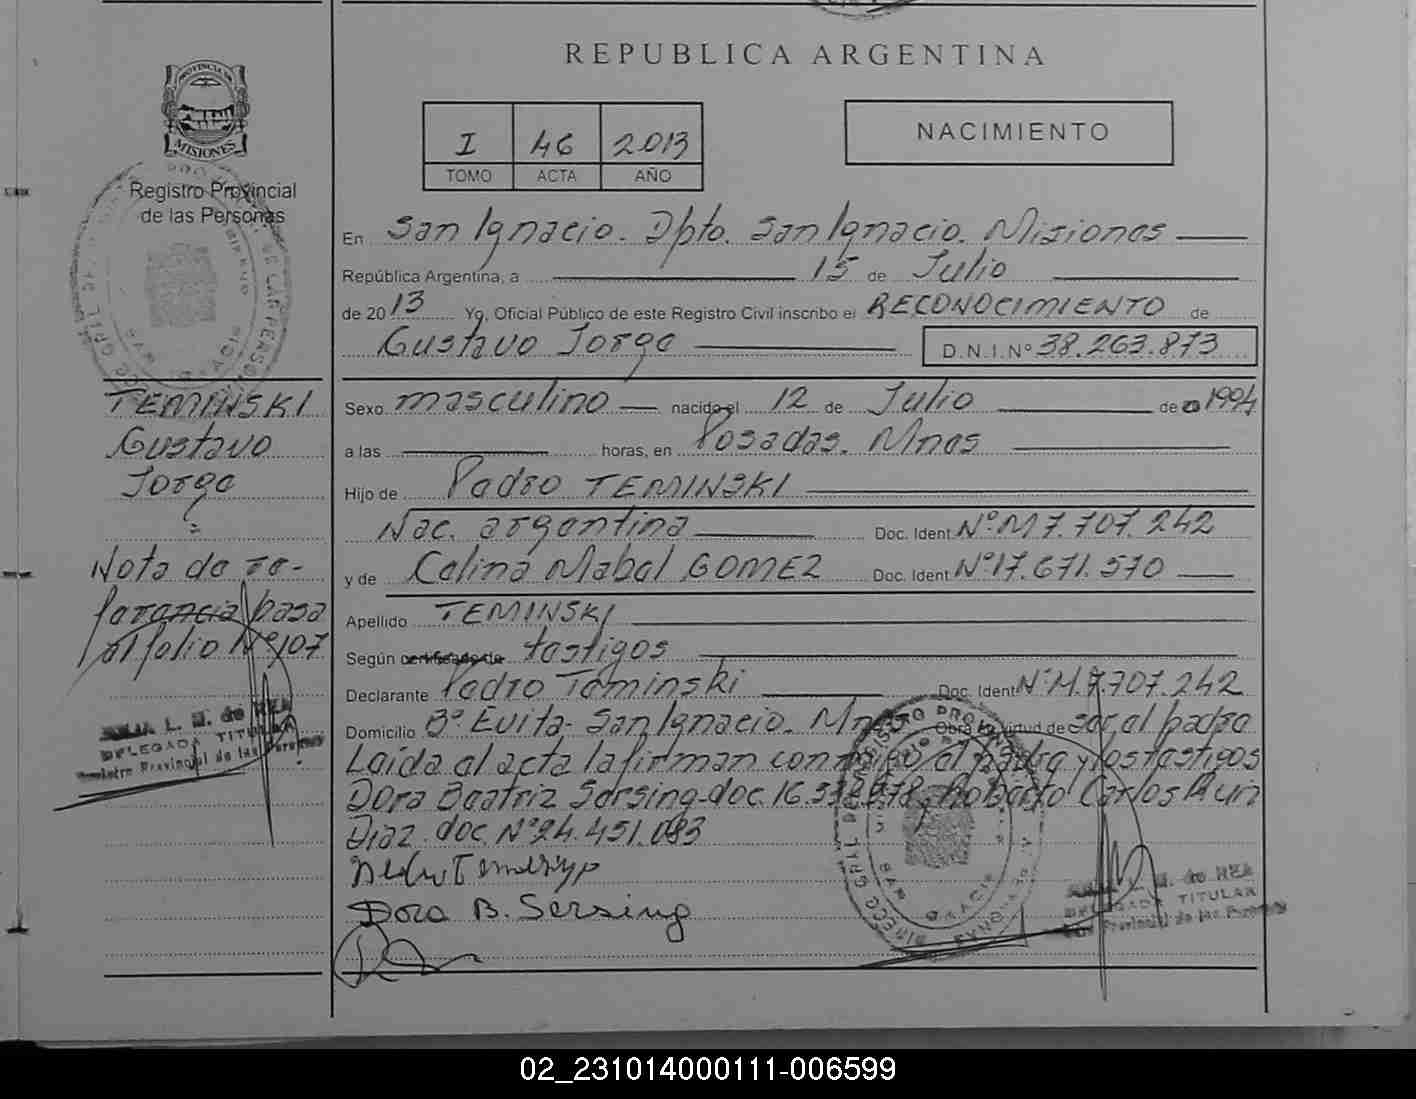 REPUBLICA ARGENTINA
PROVINCIA DE
MISIONES
Registro Provincial
de las Personas
I 46 2013
TOMO ACTA AÑO
NACIMIENTO
En San Ignacio. Dpto. San Ignacio. Misiones
República Argentina, a 15 de Julio
de 2013 Yo, Oficial Público de este Registro Civil inscribo el RECONOCIMIENTO de
Gustavo Jorge D.N.I.Nº 38.263.873
Sexo masculino nacido el 12 de Julio de 1994
a las horas, en Posadas. Mnes
Hijo de Pedro TEMINSKI
Nac. argentina Doc. Ident Nº M7.707.242
y de Celina Mabel GOMEZ Doc. Ident Nº 17.671.570
Apellido TEMINSKI
Según certificado de testigos
Declarante Pedro Teminski Doc. Ident Nº M.7.707.242
Domicilio Bº Evita- San Ignacio. Mnes Obra en virtud de ser el padre
Leída el acta la firman conmigo el padre y los testigos
Dora Beatriz Sersing- doc. 16. Roberto Carlos
Diaz. doc. Nº 24.451.083
Dora B. Sersing
TEMINSKI
Gustavo
Jorge
=
Nota de re-
ferencia pasa
al folio Nº 107
L. de REA
DELEGADA TITULAR
Registro Provincial de las Personas
L. de REA
DELEGADA TITULAR
Provincial de las Personas
02_231014000111-006599